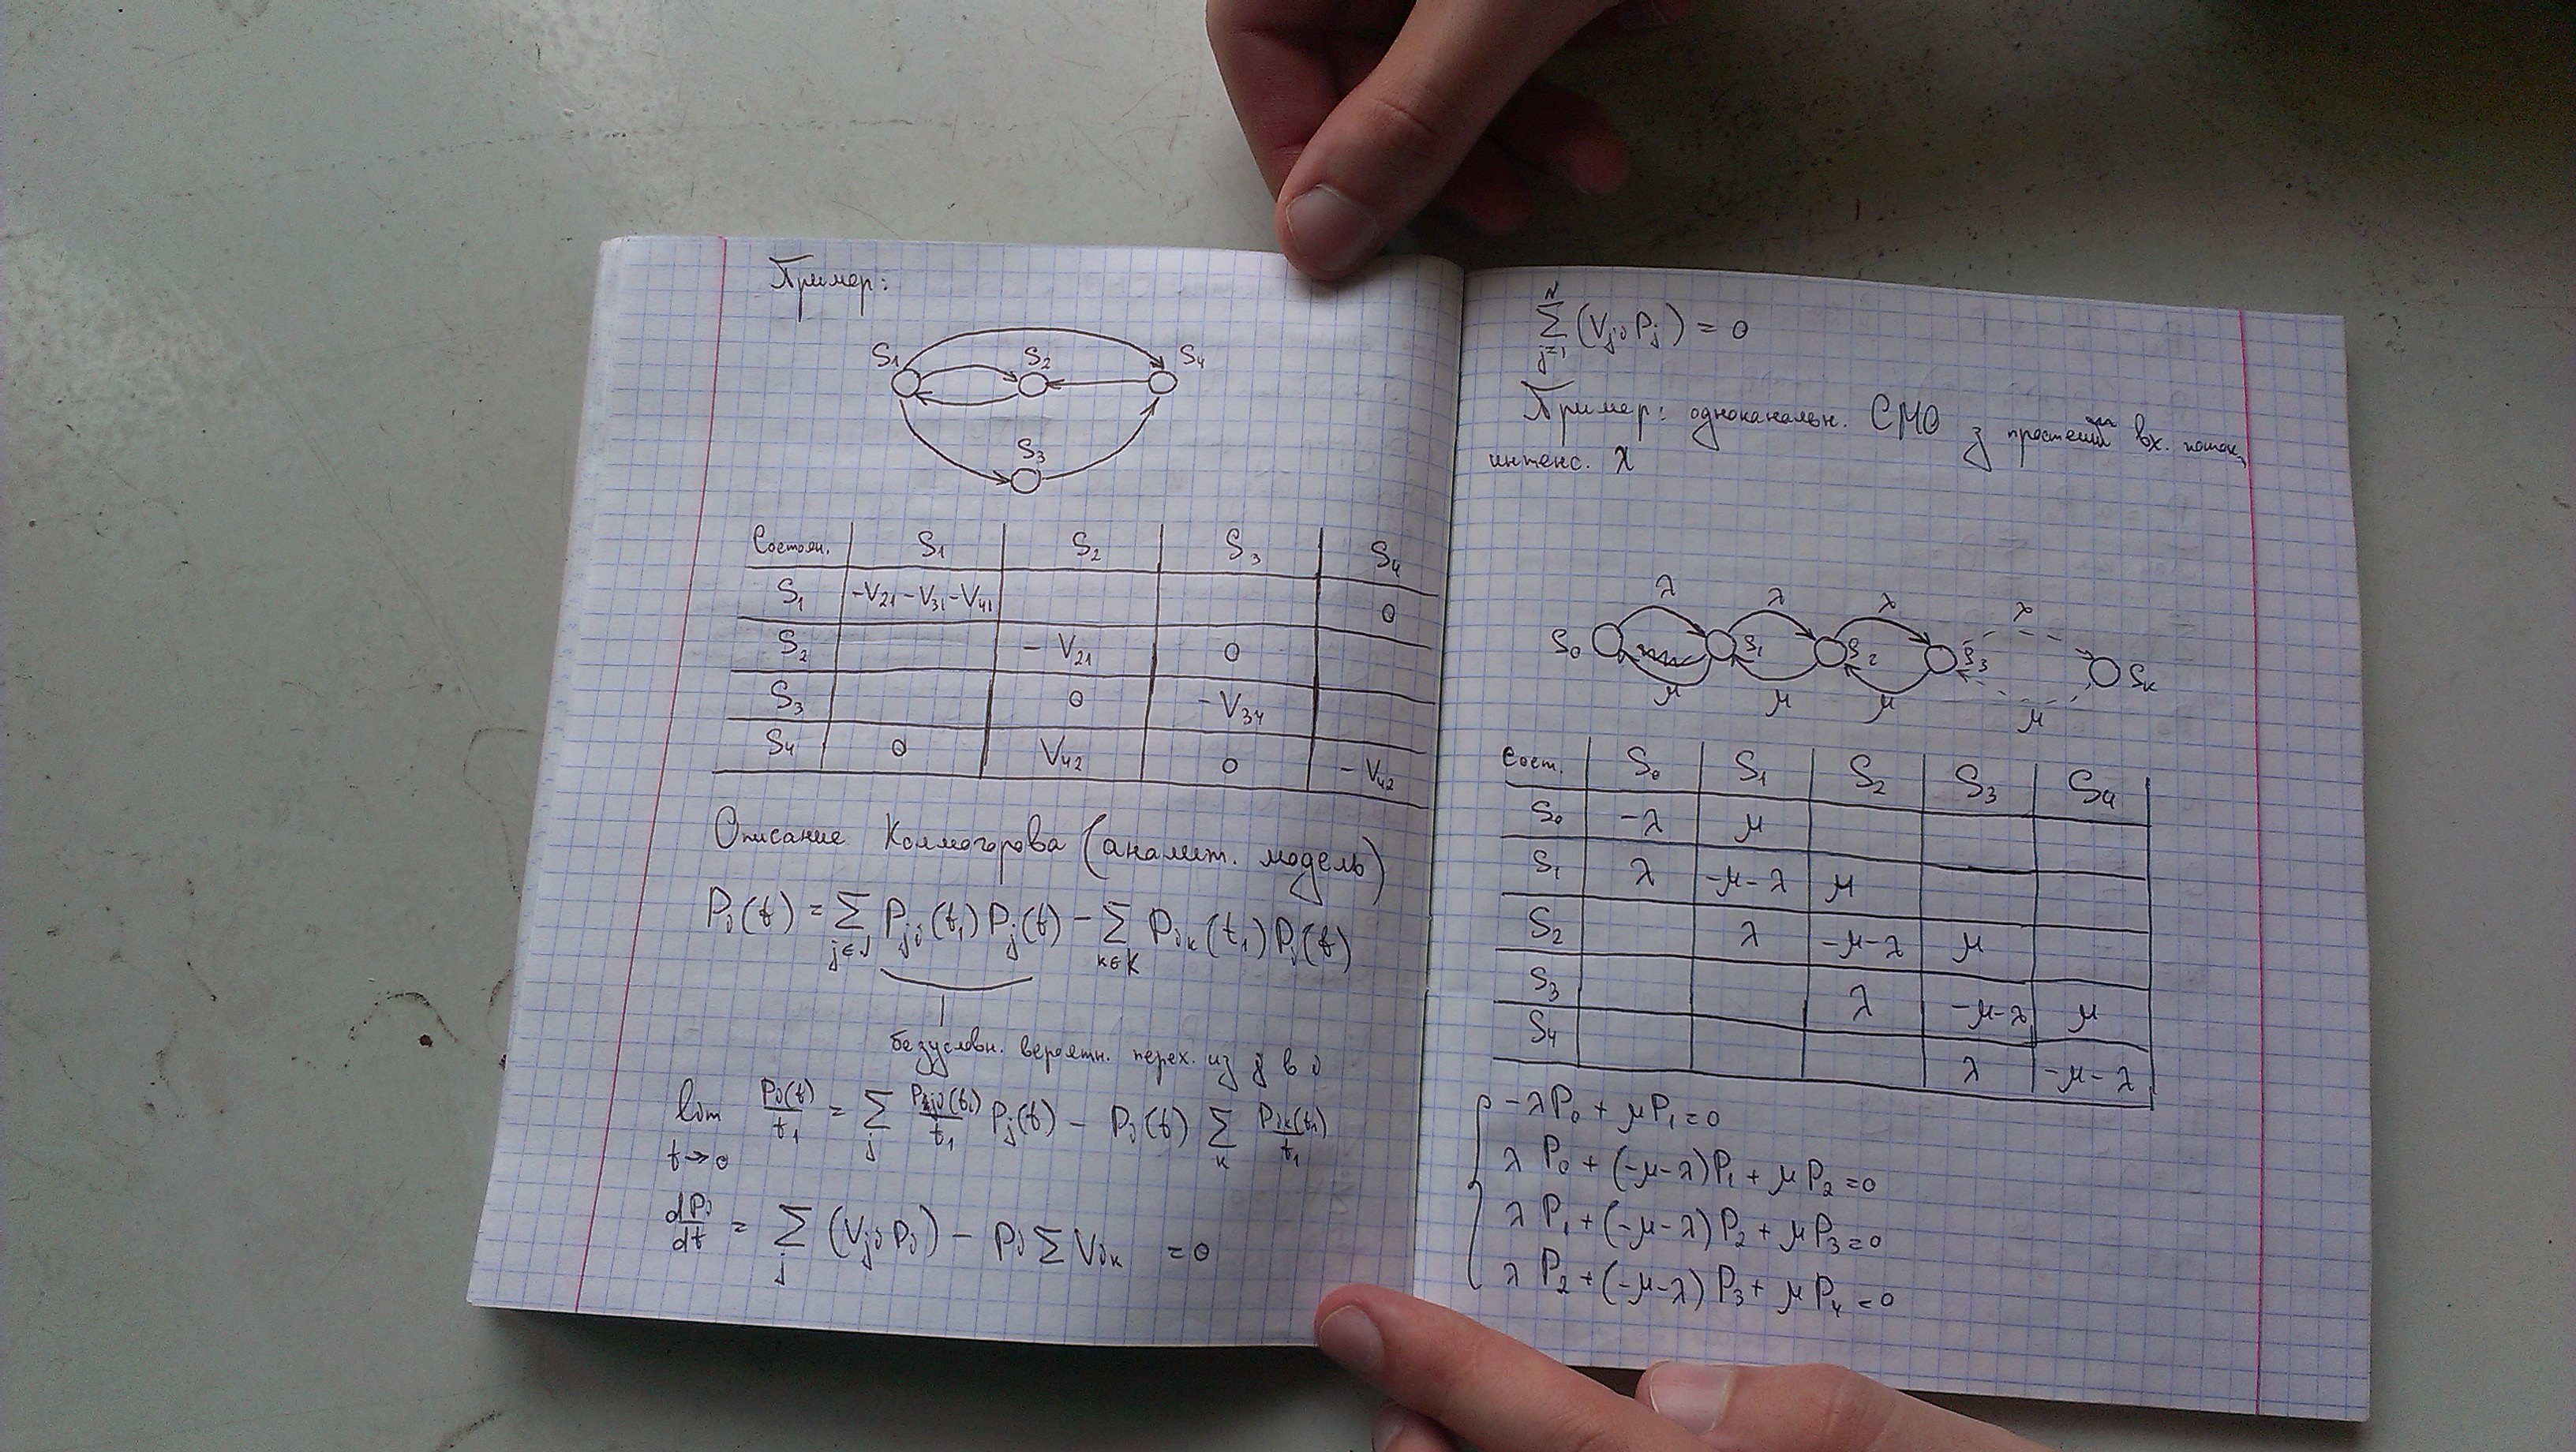 Пример:
S1 S2 S4
S3
Состоян. S1 S2 S3 S4
S1 -V21-V31-V41 0
S2 -V21 0
S3 0 -V34
S4 0 V42 0 -V42
Описание Колмогорова (аналит. модель)
Pi(t) = Σ j∈J Pji(t1) Pj(t) - Σ k∈K Pik(t1) Pi(t)
безусловн. вероятн. перех. из j в i
lim t→0 Pi(t)/t1 = Σ j Pji(t1)/t1 Pj(t) - Pi(t) Σ k Pik(t1)/t1
dPi/dt = Σ j (Vji Pi) - Pi Σ Vik = 0
N Σ j=1 (Vji Pj) = 0
Пример: одноканальн. СМО з вх. поток
интенс. λ
λ λ λ λ
S0 S1 S2 S3 Sк
μ μ μ μ
Сост. S0 S1 S2 S3 S4
S0 -λ μ
S1 λ -μ-λ μ
S2 λ -μ-λ μ
S3 λ -μ-λ μ
S4 λ -μ-λ
-λP0 + μP1=0
λ P0 + (-μ-λ)P1 + μP2=0
λ P1 + (-μ-λ)P2 + μP3=0
λ P2 + (-μ-λ)P3 + μP4=0